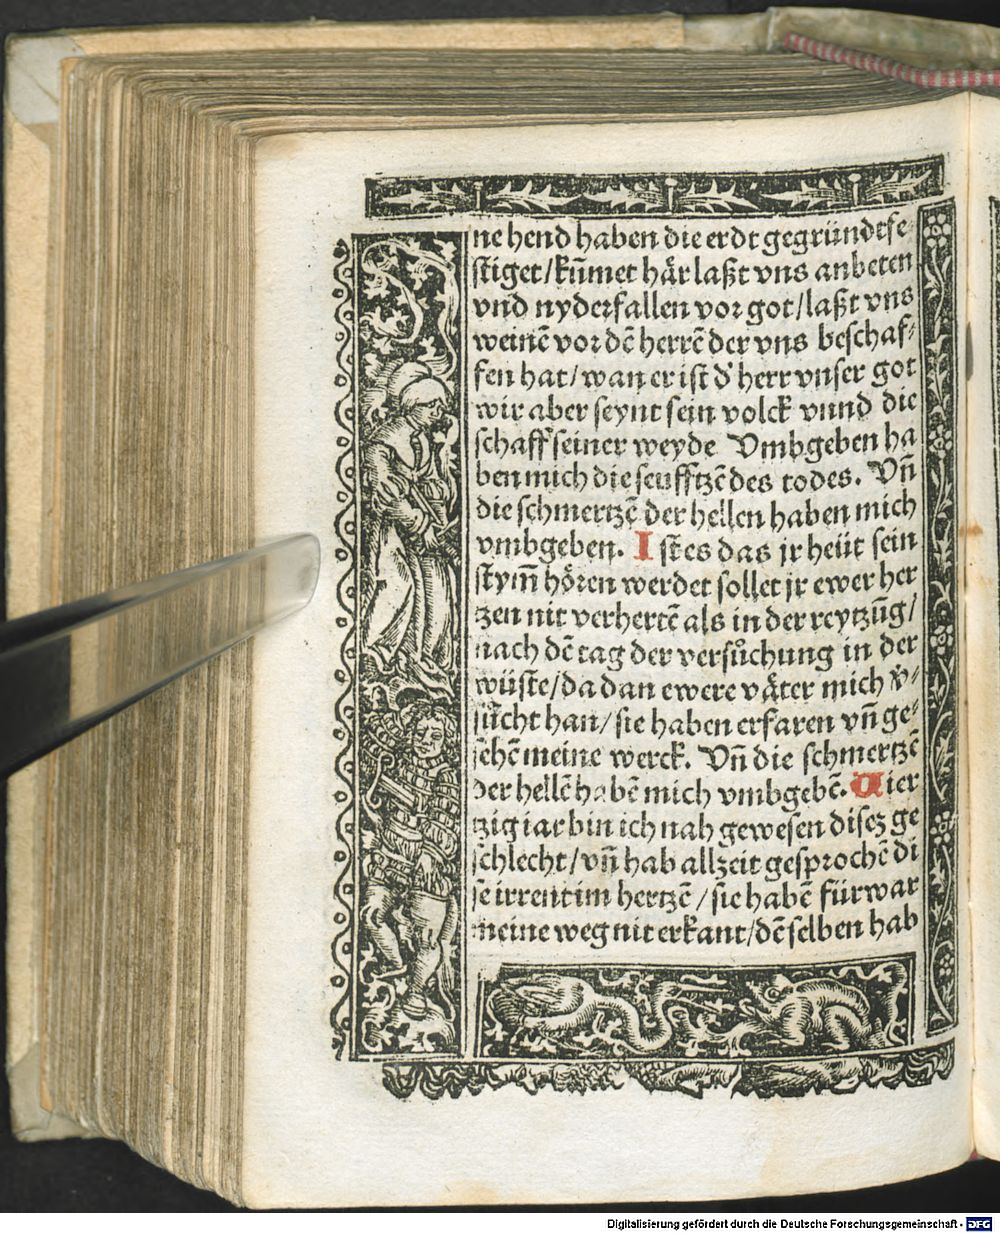 ne hend haben die erdt gegründtfe
stiget/kům̃et här laßt vns anbeten
vnd nyderfallen vor got/laßt vns
weinē vor dē herrē der vns beschaf⸗
fen hat/wan er ist d̕ herr vnser got
wir aber seynt sein volck vnnd die
schaff seiner weyde Vmbgeben ha
ben mich die seufftzē des todes. Vñ
die schmertzē der hellen haben mich
vmbgeben. Ist es das jr heüt sein
stym̃ hören werdet sollet jr ewer her
zen nit verhertē als in der reytzūg/
nach dē tag der versůchung in der
wüste/da dan ewere väter mich v̕⸗
sůcht han/sie haben erfaren vñ ge⸗
sehē meine werck. Vñ die schmertzē
der hellē habē mich vmbgebē. Vier
tzig iar bin ich nah gewesen disez ge
schlecht/vñ hab allzeit gesprochē di
se irrent im hertzē/sie habē fürwar
meine weg nit erkant/dē selben hab
Digitalisierung gefördert durch die Deutsche Forschungsgemeinschaft - DFG